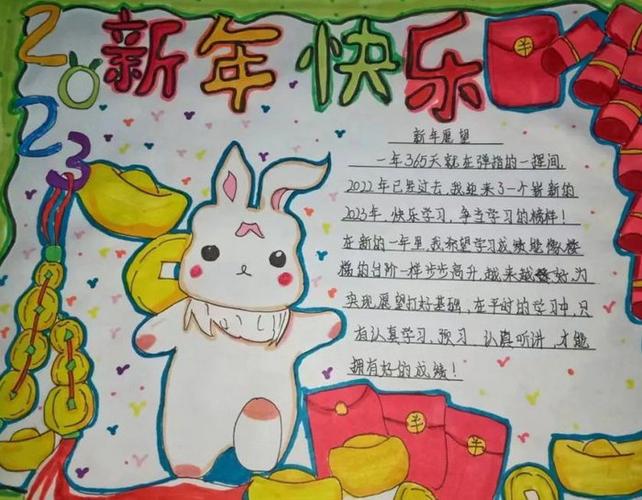 2023
新年快乐
新年愿望
一年365天就在弹指的一挥间,
2022年已经过去,我迎来了一个崭新的
2023年,快乐学习,争当学习的榜样!
在新的一年里,我希望学习成绩能像楼
梯的台阶一样步步高升,越来越好,为
实现愿望打好基础,在平时的学习中,只
有认真学习、预习、认真听讲,才能
拥有好的成绩!
羊
羊
羊
羊